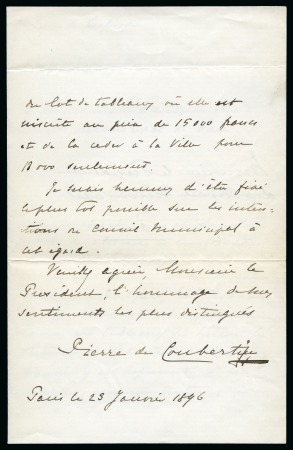 du lot de tableaux où elle est
inscrite au prix de 15000 francs
et de la céder à la Ville pour
8000 seulement.
Je serais heureux d'être fixé
le plus tôt possible sur les inten-
tions du Conseil Municipal à
cet égard.
Veuillez agréer, Monsieur le
Président, l'hommage de mes
sentiments les plus distingués
Pierre de Coubertin
Paris le 23 Janvier 1896